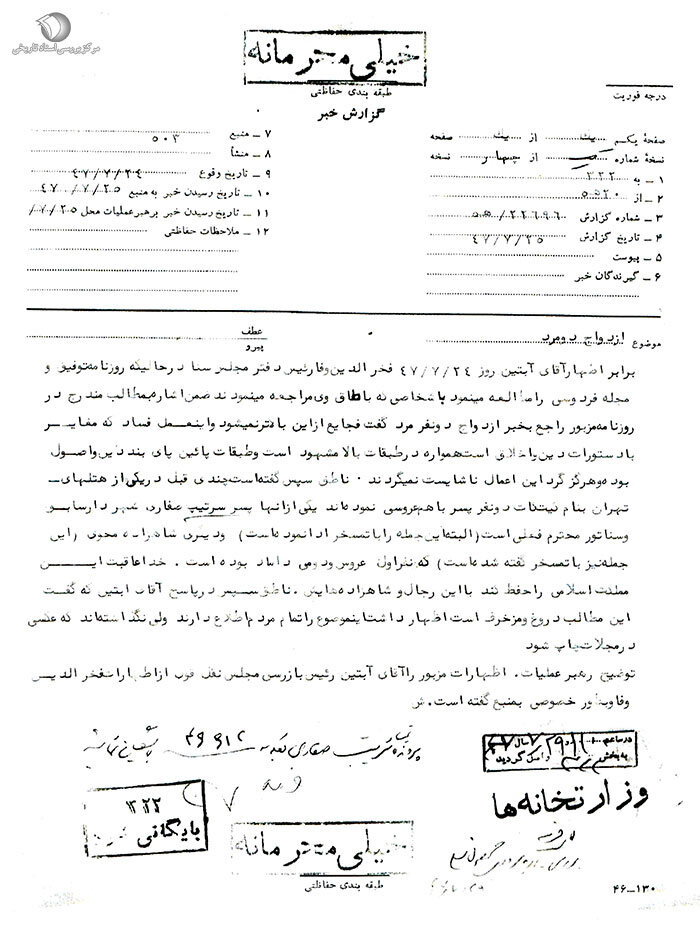 مرکز بررسی اسناد تاریخی
خیلی محرمانه
طبقه بندی حفاظتی
گزارش خبر
درجه فوریت
صفحهٔ یکم یک از یک صفحه
نسخهٔ شماره از چهار نسخه
۱ – به ۳۲۲
۲ – از ۵۵۲۰
۳ – شماره گزارش ۵۵/۲۲۶۹۶
۴ – تاریخ گزارش ۴۷/۷/۲۵
۵ – پیوست
۶ – گیرندگان خبر
۷ – منبع ۵۰۳
۸ – منشأ
۹ – تاریخ وقوع ۴۷/۷/۲۴
۱۰ – تاریخ رسیدن خبر به منبع ۴۷/۷/۲۵
۱۱ – تاریخ رسیدن خبر برهبر عملیات محل /۷/۲۵
۱۲ – ملاحظات حفاظتی
موضوع ازدواج دو مرد
عطف
پیرو
برابر اظهار آقای آبتین روز ۴۷/۷/۲۴ فخر الدین وفا رئیس دفتر مجلس سنا در حالیکه روزنامه توفیق و
مجله فردوسی را مطالعه مینمود با شخاصی که باطاق وی مراجعه مینمودند ضمن اشاره بمطالب مندرج در
روزنامه مزبور راجع بخبر ازدواج دو نفر مرد گفت فجایع از این بالاتر نمیشود و اینعمل فساد که مغایر
با دستورات دین و اخلاق است همواره در طبقات بالا مشهود است و طبقات پائین پای بند دین و اصول
بوده و هرگز گرد این اعمال ناشایست نمیگردند . ناطق سپس گفته است چندی قبل در یکی از هتلهای –
تهران بنام دو نفر پسر با هم عروسی نموده اند یکی از آنها پسر سرتیپ صفاری شهردار سابق
و سناتور محترم فعلی است (البته این جمله را با تمسخر ادا نموده است) و دیگری شاهزاده (این
جمله نیز با تمسخر گفته شده است) که نفر اول عروس و دومی داماد بوده است . خدا عاقبت این
مملکت اسلامی را حفظ کند با این رجال و شاهزاده هایش . ناطق سپس در پاسخ آقای آبتین که گفت
این مطالب دروغ و مزخرف است اظهار داشت اینموضوع را تمام مردم اطلاع دارند ولی نگذاشته اند که عکس
در مجلات چاپ شود
توضیح رهبر عملیات . اظهارات مزبور را آقای آبتین رئیس بازرسی مجلس نقل قول از اظهارات فخر الدین
وفا و بطور خصوصی بمنبع گفته است . ش
پرونده صفاری
۱۳۲۲
بایگانی شود
وزارتخانه ها
خیلی محرمانه
طبقه بندی حفاظتی
۴۶–۱۳۰